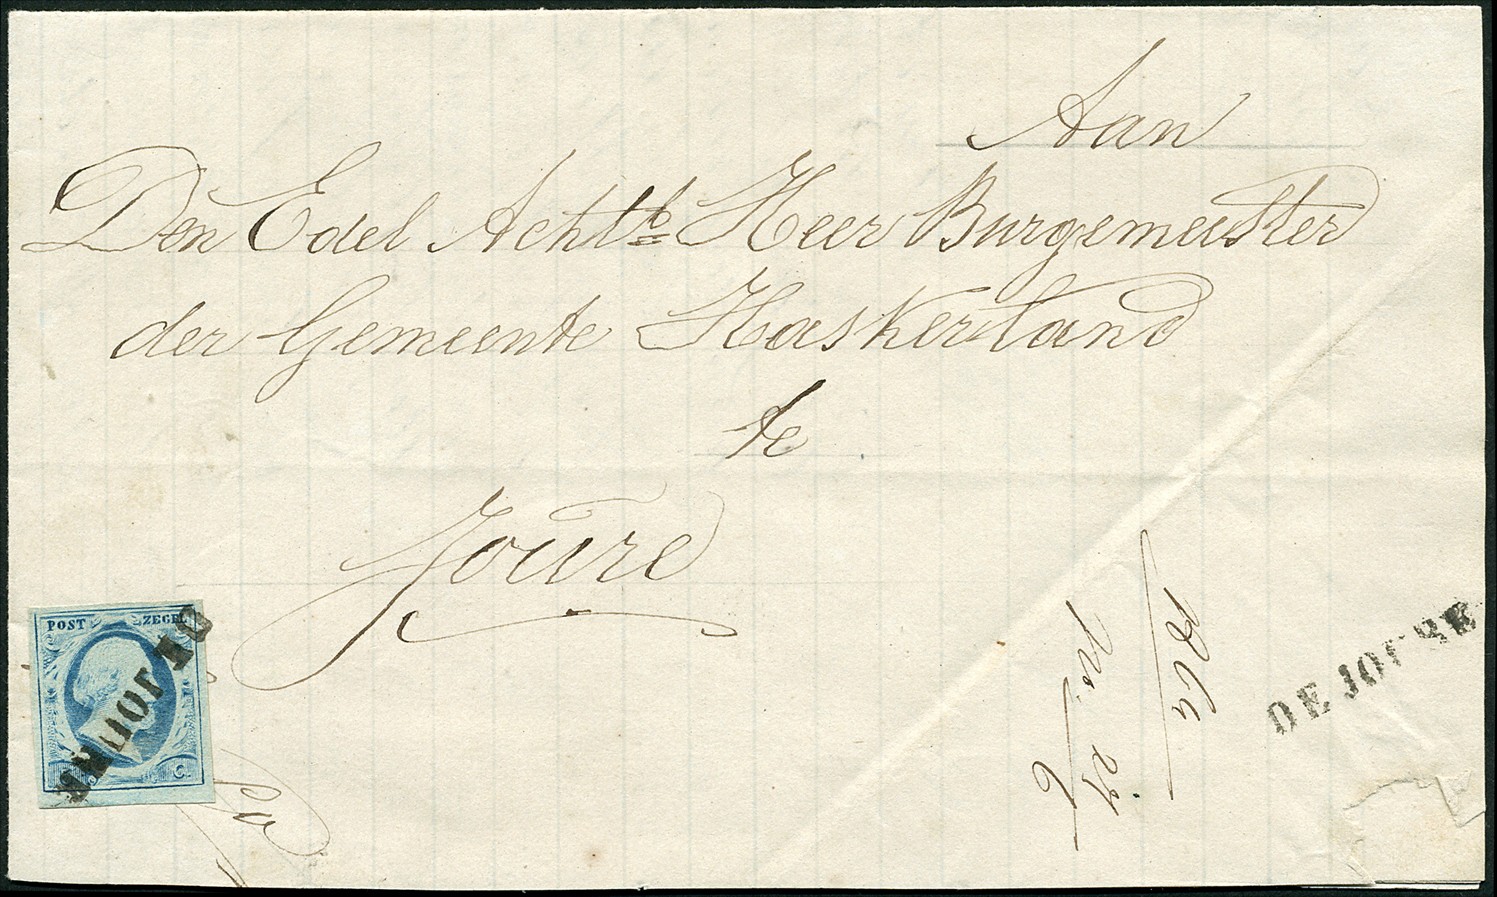 Aan
Den Edel Achtb. Heer Burgemeester
der Gemeente Haskerland
te
Joure
POST ZEGEL
C.
DE JOURE
DE JOURE